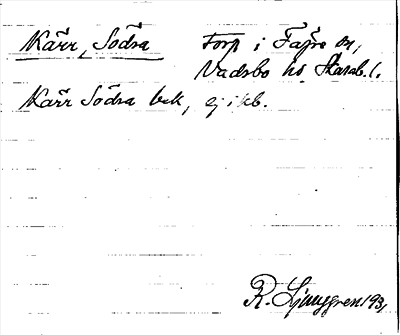 Kärr, Södra Torp i Fägre sn,
Vadsbo hd Skarab. l.
Kärr Södra bek, ej i kb.
R. Ljunggren 193